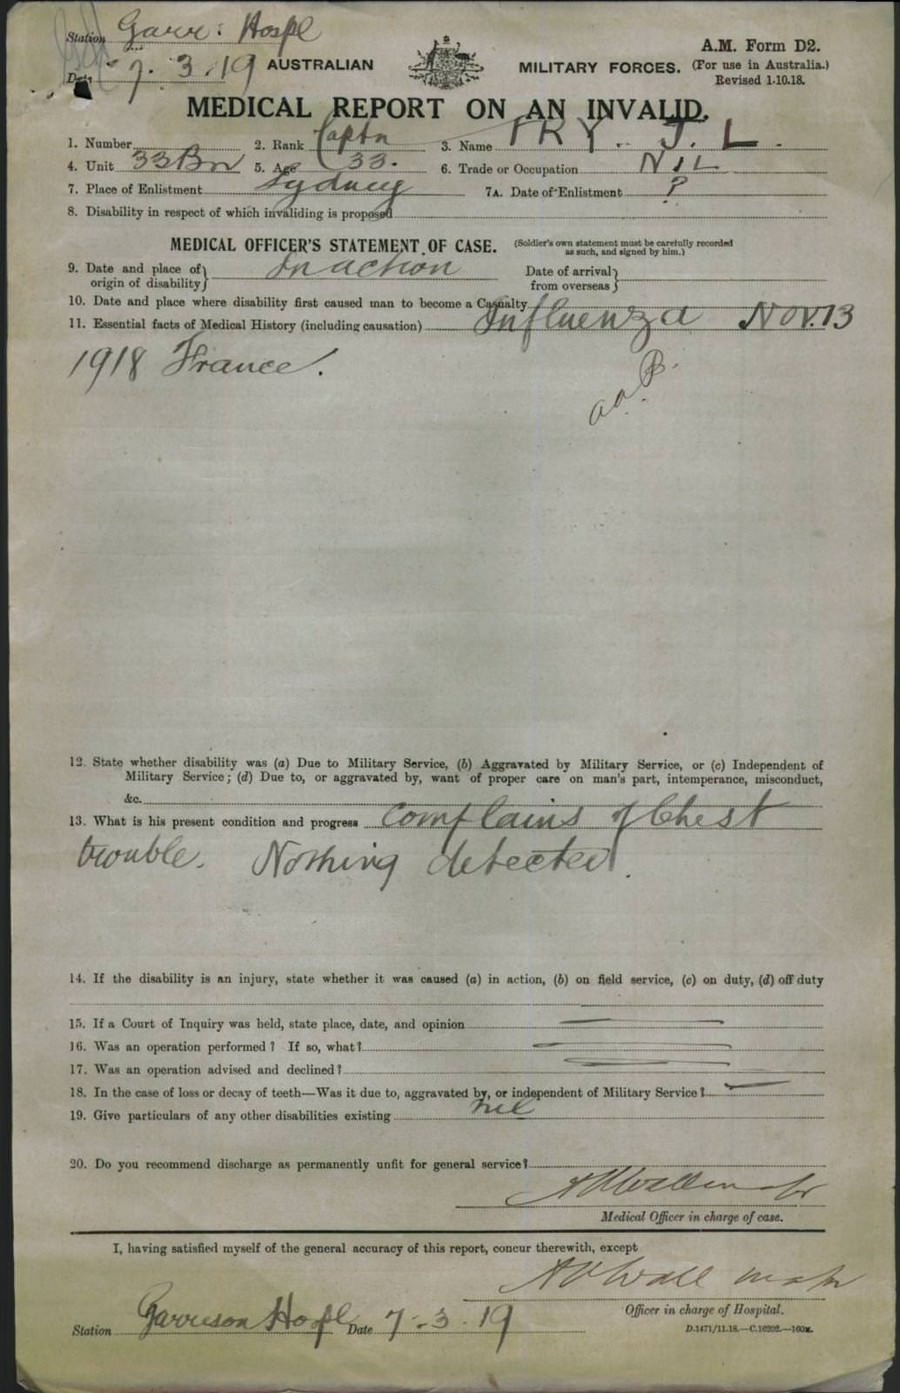 Station Garr: Hospl
Date 7.3.19 AUSTRALIAN MILITARY FORCES.
A.M. Form D2.
(For use in Australia.)
Revised 1-10.18.
MEDICAL REPORT ON AN INVALID.
1. Number 2. Rank Captn 3. Name FRY. J. L.
4. Unit 33 Bn 5. Age 33. 6. Trade or Occupation NIL
7. Place of Enlistment Sydney 7A. Date of Enlistment ?
8. Disability in respect of which invaliding is proposed
MEDICAL OFFICER'S STATEMENT OF CASE. (Soldier's own statement must be carefully recorded as such, and signed by him.)
9. Date and place of origin of disability In action Date of arrival from overseas
10. Date and place where disability first caused man to become a Casualty
11. Essential facts of Medical History (including causation) Influenza Nov. 13
1918 France.
12. State whether disability was (a) Due to Military Service, (b) Aggravated by Military Service, or (c) Independent of
Military Service; (d) Due to, or aggravated by, want of proper care on man's part, intemperance, misconduct,
&c.
13. What is his present condition and progress Complains of Chest
trouble. Nothing detected.
14. If the disability is an injury, state whether it was caused (a) in action, (b) on field service, (c) on duty, (d) off duty
15. If a Court of Inquiry was held, state place, date, and opinion
16. Was an operation performed? If so, what?
17. Was an operation advised and declined?
18. In the case of loss or decay of teeth—Was it due to, aggravated by, or independent of Military Service?
19. Give particulars of any other disabilities existing nil
20. Do you recommend discharge as permanently unfit for general service?
Medical Officer in charge of case.
I, having satisfied myself of the general accuracy of this report, concur therewith, except
Officer in charge of Hospital.
Station Garrison Hospl Date 7-3-19
D.1471/11.18.—C.16292.—100M.